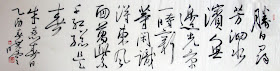 勝日尋
芳泗水
濱無
邊光景
一時新
等閑識
得東風
面萬紫
千紅總是
春
朱熹春日